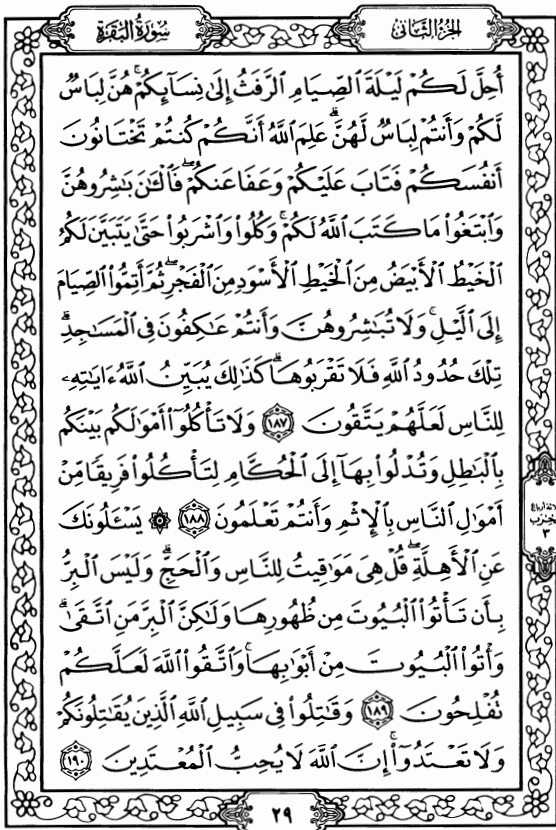 سُورَةُ البَقَرَةِ
الجُزءُ الثَّانِى
أُحِلَّ لَكُمْ لَيْلَةَ ٱلصِّيَامِ ٱلرَّفَثُ إِلَىٰ نِسَآئِكُمْ ۚ هُنَّ لِبَاسٌ
لَّكُمْ وَأَنتُمْ لِبَاسٌ لَّهُنَّ ۗ عَلِمَ ٱللَّهُ أَنَّكُمْ كُنتُمْ تَخْتَانُونَ
أَنفُسَكُمْ فَتَابَ عَلَيْكُمْ وَعَفَا عَنكُمْ ۖ فَٱلْـَٰٔنَ بَـٰشِرُوهُنَّ
وَٱبْتَغُوا۟ مَا كَتَبَ ٱللَّهُ لَكُمْ ۚ وَكُلُوا۟ وَٱشْرَبُوا۟ حَتَّىٰ يَتَبَيَّنَ لَكُمُ
ٱلْخَيْطُ ٱلْأَبْيَضُ مِنَ ٱلْخَيْطِ ٱلْأَسْوَدِ مِنَ ٱلْفَجْرِ ۖ ثُمَّ أَتِمُّوا۟ ٱلصِّيَامَ
إِلَى ٱلَّيْلِ ۚ وَلَا تُبَـٰشِرُوهُنَّ وَأَنتُمْ عَـٰكِفُونَ فِى ٱلْمَسَـٰجِدِ ۗ
تِلْكَ حُدُودُ ٱللَّهِ فَلَا تَقْرَبُوهَا ۗ كَذَٰلِكَ يُبَيِّنُ ٱللَّهُ ءَايَـٰتِهِۦ
لِلنَّاسِ لَعَلَّهُمْ يَتَّقُونَ ١٨٧ وَلَا تَأْكُلُوٓا۟ أَمْوَٰلَكُم بَيْنَكُم
بِٱلْبَـٰطِلِ وَتُدْلُوا۟ بِهَآ إِلَى ٱلْحُكَّامِ لِتَأْكُلُوا۟ فَرِيقًا مِّنْ
أَمْوَٰلِ ٱلنَّاسِ بِٱلْإِثْمِ وَأَنتُمْ تَعْلَمُونَ ١٨٨ ۞ يَسْـَٔلُونَكَ
عَنِ ٱلْأَهِلَّةِ ۖ قُلْ هِىَ مَوَٰقِيتُ لِلنَّاسِ وَٱلْحَجِّ ۗ وَلَيْسَ ٱلْبِرُّ
بِأَن تَأْتُوا۟ ٱلْبُيُوتَ مِن ظُهُورِهَا وَلَـٰكِنَّ ٱلْبِرَّ مَنِ ٱتَّقَىٰ ۗ
وَأْتُوا۟ ٱلْبُيُوتَ مِنْ أَبْوَٰبِهَا ۚ وَٱتَّقُوا۟ ٱللَّهَ لَعَلَّكُمْ
تُفْلِحُونَ ١٨٩ وَقَـٰتِلُوا۟ فِى سَبِيلِ ٱللَّهِ ٱلَّذِينَ يُقَـٰتِلُونَكُمْ
وَلَا تَعْتَدُوٓا۟ ۚ إِنَّ ٱللَّهَ لَا يُحِبُّ ٱلْمُعْتَدِينَ ١٩٠
أرباع
٣
٢٩